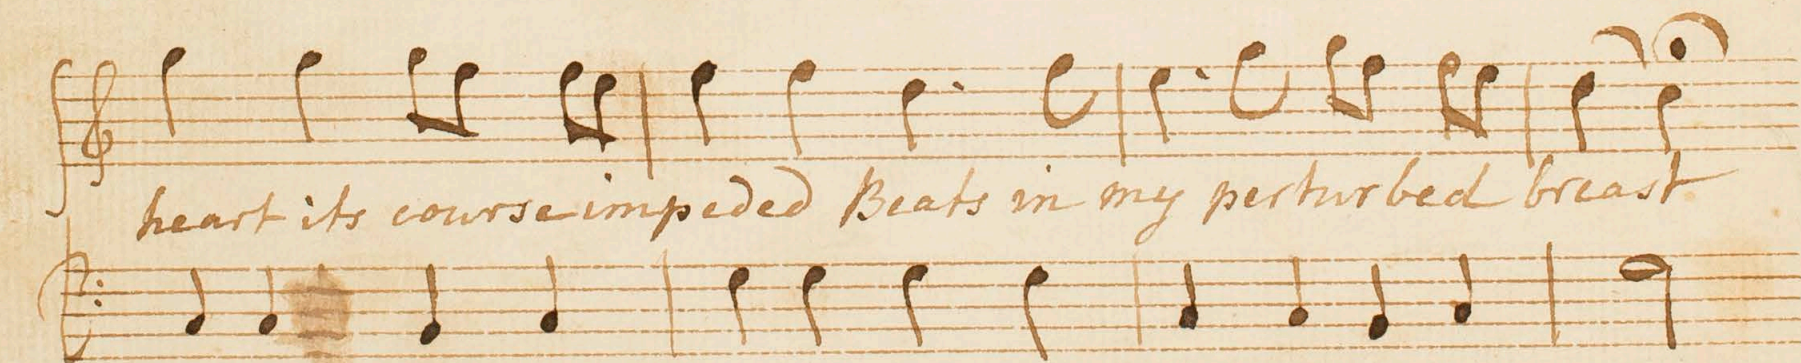 heart its course impeded Beats in my perturbed breast